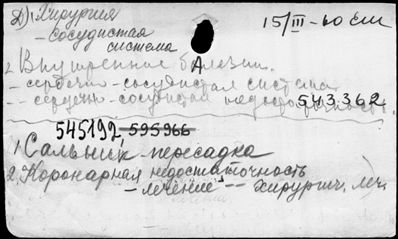 Д) Хирургия 15/III-60 ЕШ
- Сосудистая
система
2. Внутренние болезни.
- сердечн-сосудистая система
-- сердечн-сосудистая недостаточность 543362
545192, 595966
1. Сальник-пересадка
2. Коронарная недостаточность
- лечение -- хирургич. леч.